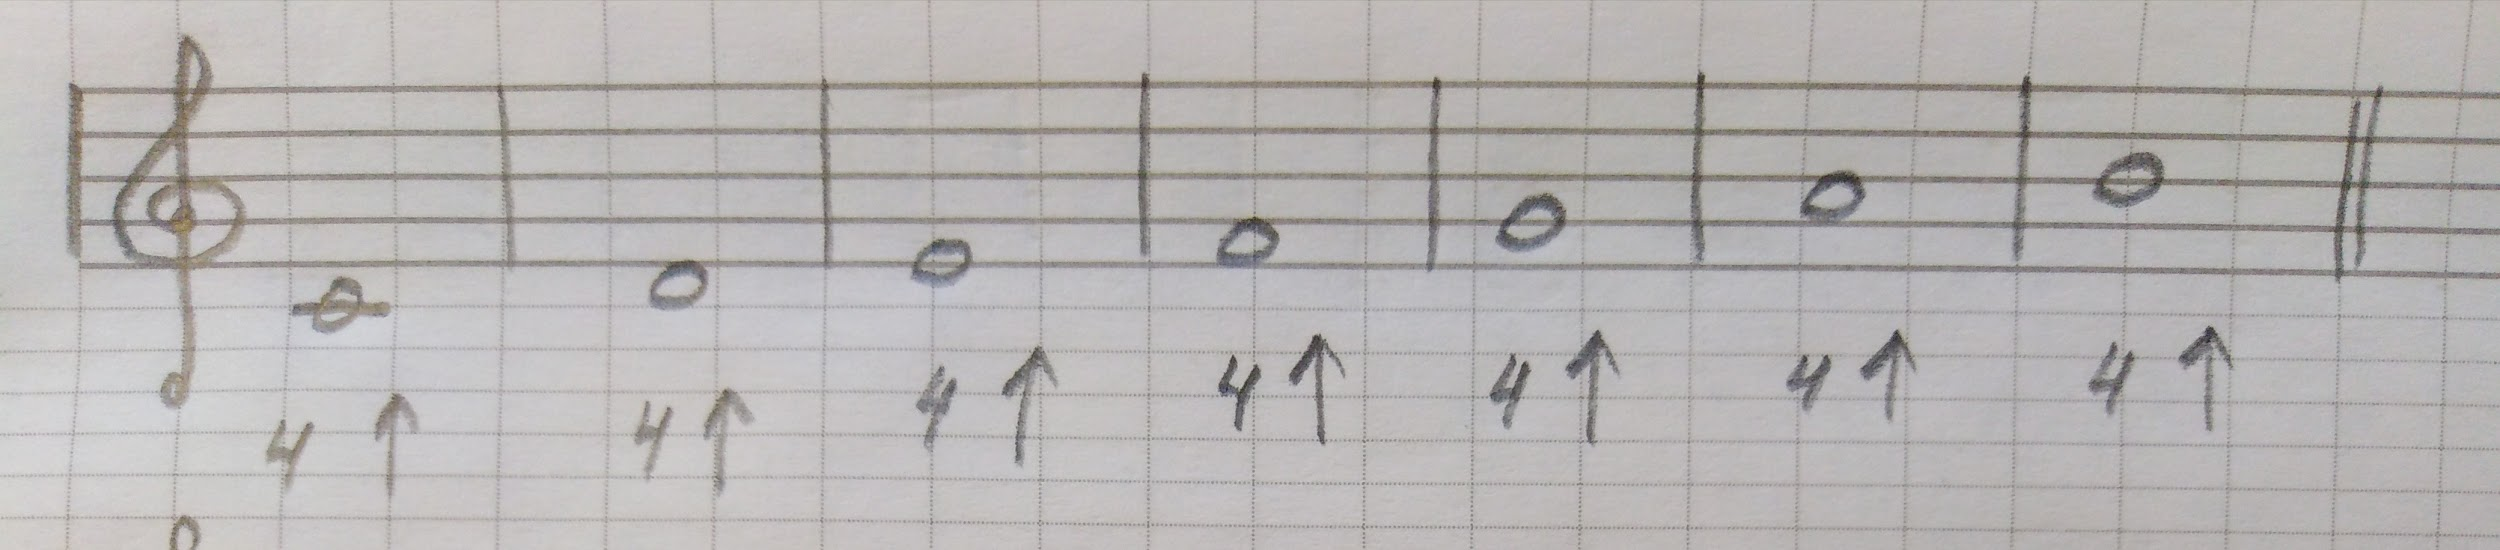 4 ↑ 4 ↑ 4 ↑ 4 ↑ 4 ↑ 4 ↑ 4 ↑